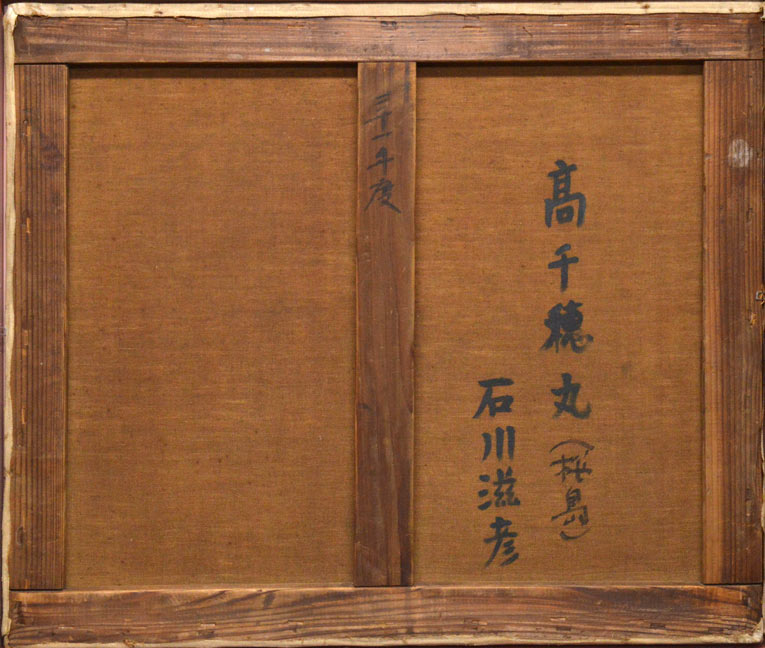 髙千穂丸(桜島)
石川滋彦
三十一年度